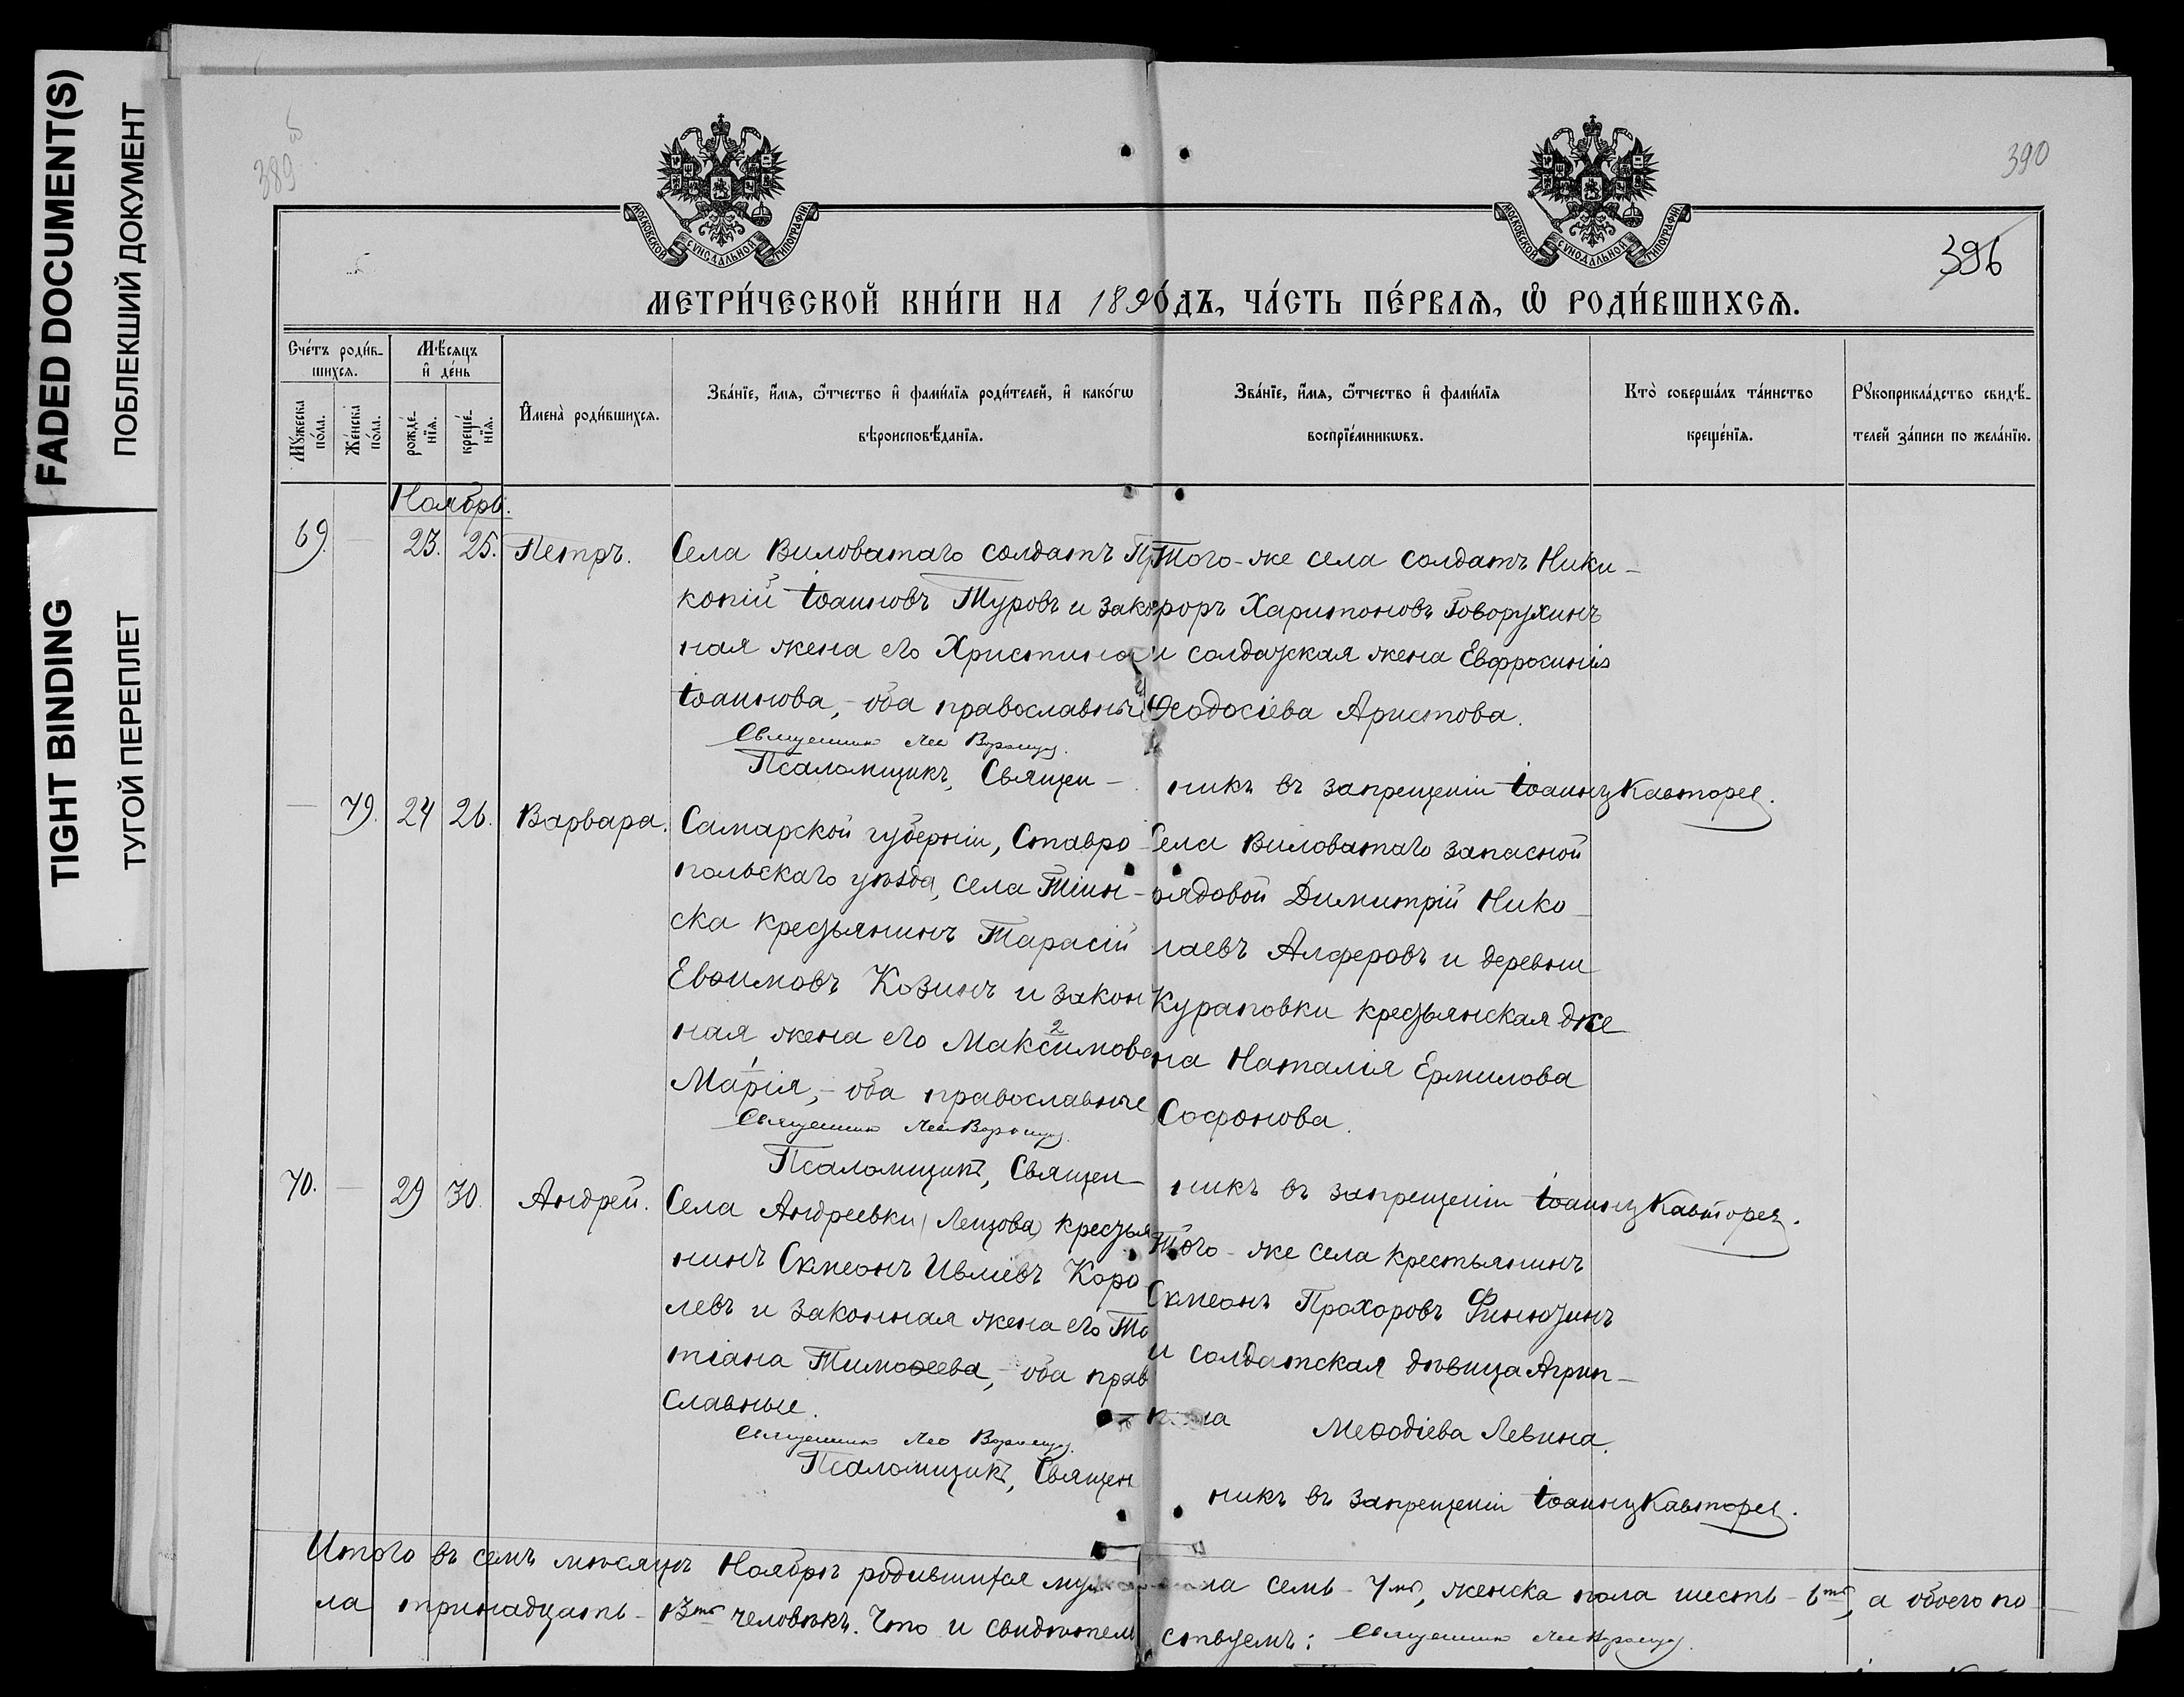 FADED DOCUMENT(S)
ПОБЛЕКШИЙ ДОКУМЕНТ
TIGHT BINDING
ТУГОЙ ПЕРЕПЛЕТ
389
390
396
МОСКОВСКОЙ СѴНОДАЛЬНОЙ ТИПОГРАФІИ
МОСКОВСКОЙ СѴНОДАЛЬНОЙ ТИПОГРАФІИ
МЕТРИ́ЧЕСКОЙ КНИ́ГИ НА 189 О́ДЪ, ЧА́СТЬ ПЕ́РВАѦ, Ѡ҆ РОДИ́ВШИХСѦ.
Сче́тъ роди́в-
шихсѧ.
Мꙋ́жеска
по́ла.
Же́нска
по́ла.
Мѣ́сѧцъ
и҆ де́нь
рожде́-
нїѧ.
креще́-
нїѧ.
И҆мена̀ роди́вшихсѧ.
Зва́нїе, и҆́мѧ, ѻ҆́тчество и҆ фами́лїѧ роди́телей, и҆ како́гѡ
вѣроисповѣ́данїѧ.
Зва́нїе, и҆́мѧ, ѻ҆́тчество и҆ фами́лїѧ
воспрїе́мникѡвъ.
Кто̀ соверша́лъ та́инство
креще́нїѧ.
Рꙋкоприкла́дство свидѣ́-
телей за́писи по жела́нїю.
Ноябрь.
69. — 23. 25. Петръ.
Села Виловатаго солдатъ Пр
копій Іоанновъ Туровъ и зако
ная жена его Христина
Іоаннова, - оба православны
Священник Лео
Псаломщикъ, Священ-
Того-же села солдатъ Ники-
форъ Харитоновъ Говорухинъ
и солдатская жена Евфросинія
Ѳеодосіева Аристова.
никъ въ запрещеніи Іоаннъ Кавторев.
— 79. 24 26. Варвара.
Самарской губерніи, Ставро-
польскаго уѣзда, села Тіин-
ска крестьянинъ Тарасій
Евѳимовъ Козинъ и закон
ная жена его Максимова 2
Марія, 1 - оба православные
Священник Лео
Псаломщикъ, Священ-
Села Виловатаго запасной
рядовой Димитрій Нико-
лаевъ Алферовъ и деревни
Кураповки крестьянская же
на Наталія Ермилова
Софонова.
никъ въ запрещеніи Іоаннъ Кавторев.
70. — 29 30. Андрей.
Села Андреевки (Лещова) крестья
нинъ Симеонъ Ивліевъ Коро
левъ и законная жена его Та
тіана Тимоѳеева, - оба прав
славные.
Священник Лео
Псаломщикъ, Священ
Того-же села крестьянинъ
Симеонъ Прохоровъ Финюзинъ
и солдатская дѣвица Агрип-
пина Меѳодіева Левина.
никъ въ запрещеніи Іоаннъ Кавторев.
Итого въ семъ мѣсяцѣ Ноябрѣ родившихся муж пола семь - 7мь, женска пола шесть - 6ть, а обоего по-
ла тринадцать - 13ть человѣкъ. Что и свидѣтель ствуемъ: Священник Лео